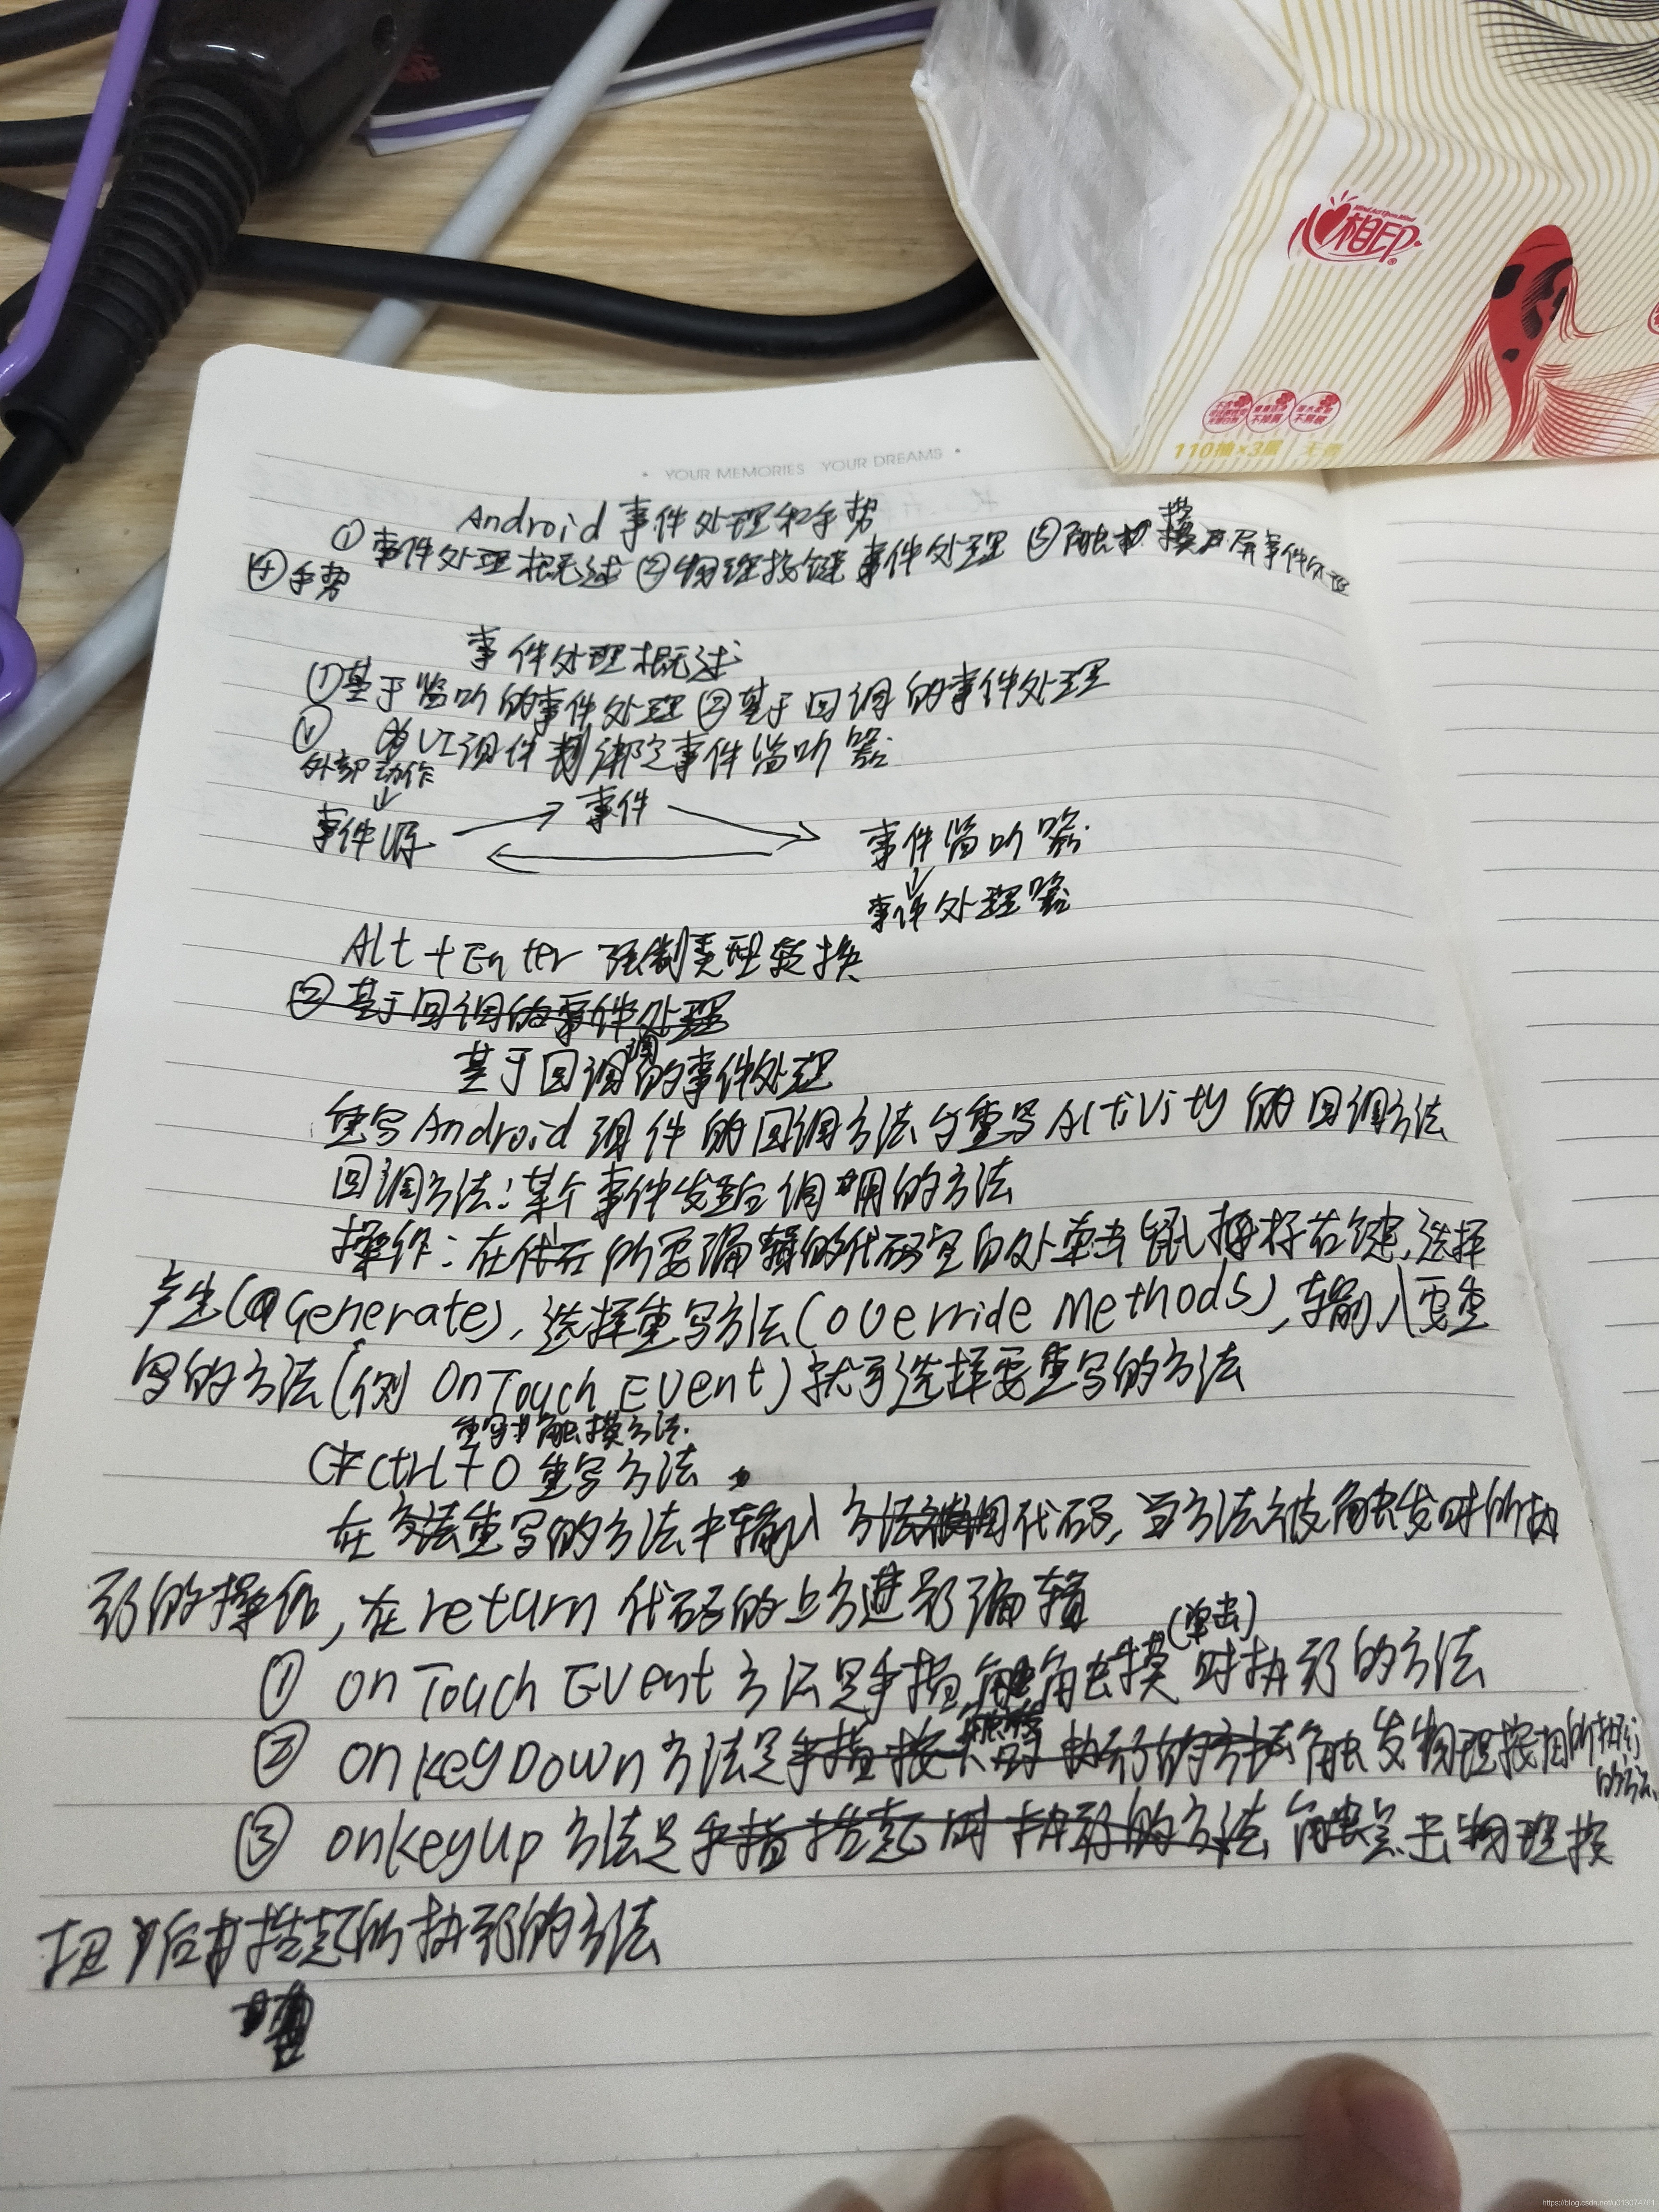 心相印
Mind Act Upon Mind
110抽×3层 无香
· YOUR MEMORIES YOUR DREAMS ·
Android 事件处理和手势
①事件处理概述 ②物理按键事件处理 ③触摸屏事件处理
④手势
事件处理概述
①基于监听的事件处理 ②基于回调的事件处理
① 为UI组件绑定事件监听器
外部动作
事件源 事件 事件监听器
事件处理器
Alt+Enter 强制类型转换
②基于回调的事件处理
基于回调的事件处理
重写Android组件的回调方法与重写Activity的回调方法
回调方法:某个事件发生后调用的方法
操作:在所要编辑的代码空白处单击鼠标右键,选择
产生(Generate),选择重写方法(override Methods),输入要重
写的方法(例 OnTouch Event)就可选择要重写的方法
重写触摸方法.
Ctrl+O 重写方法
在重写的方法中输入代码,当方法被触发时所执
行的操作,在return代码的上方进行编辑
① onTouch Event 方法是手指触摸(单击)时执行的方法
② onkeyDown方法是触发物理按扭所执行的方法
③ onkeyUp方法是手指抬起时执行的方法点击物理按
扭后抬起所执行的方法
https://blog.csdn.net/u013074761